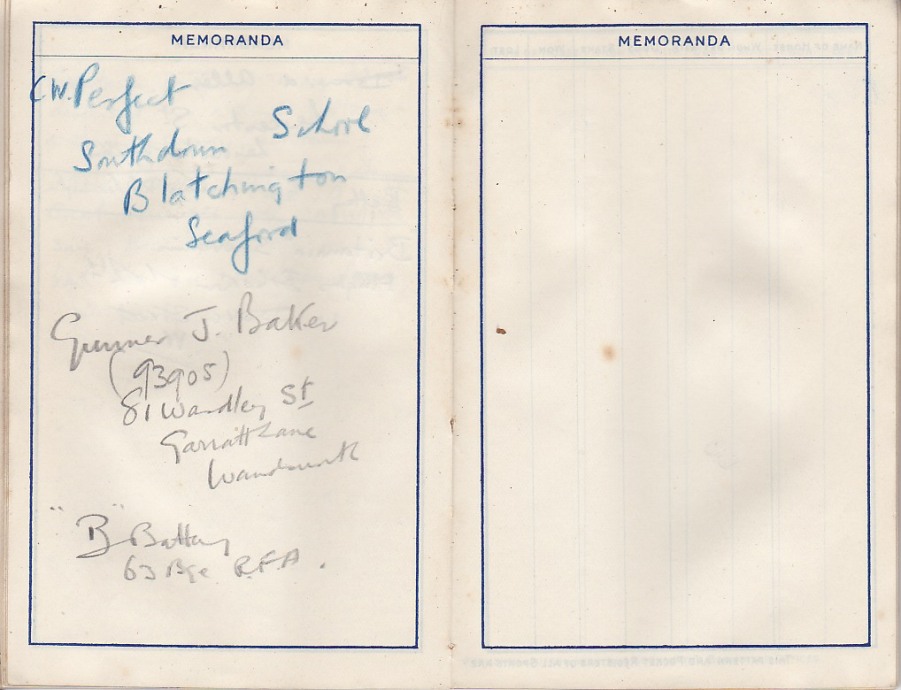 MEMORANDA
C.W. Perfect
Southdown School
Blatchington
Seaford
Gunner J. Baker
(93905)
81 Wandley St
Garratt Lane
Wandsworth
"B" Battery
63 Bge R.F.A.
MEMORANDA